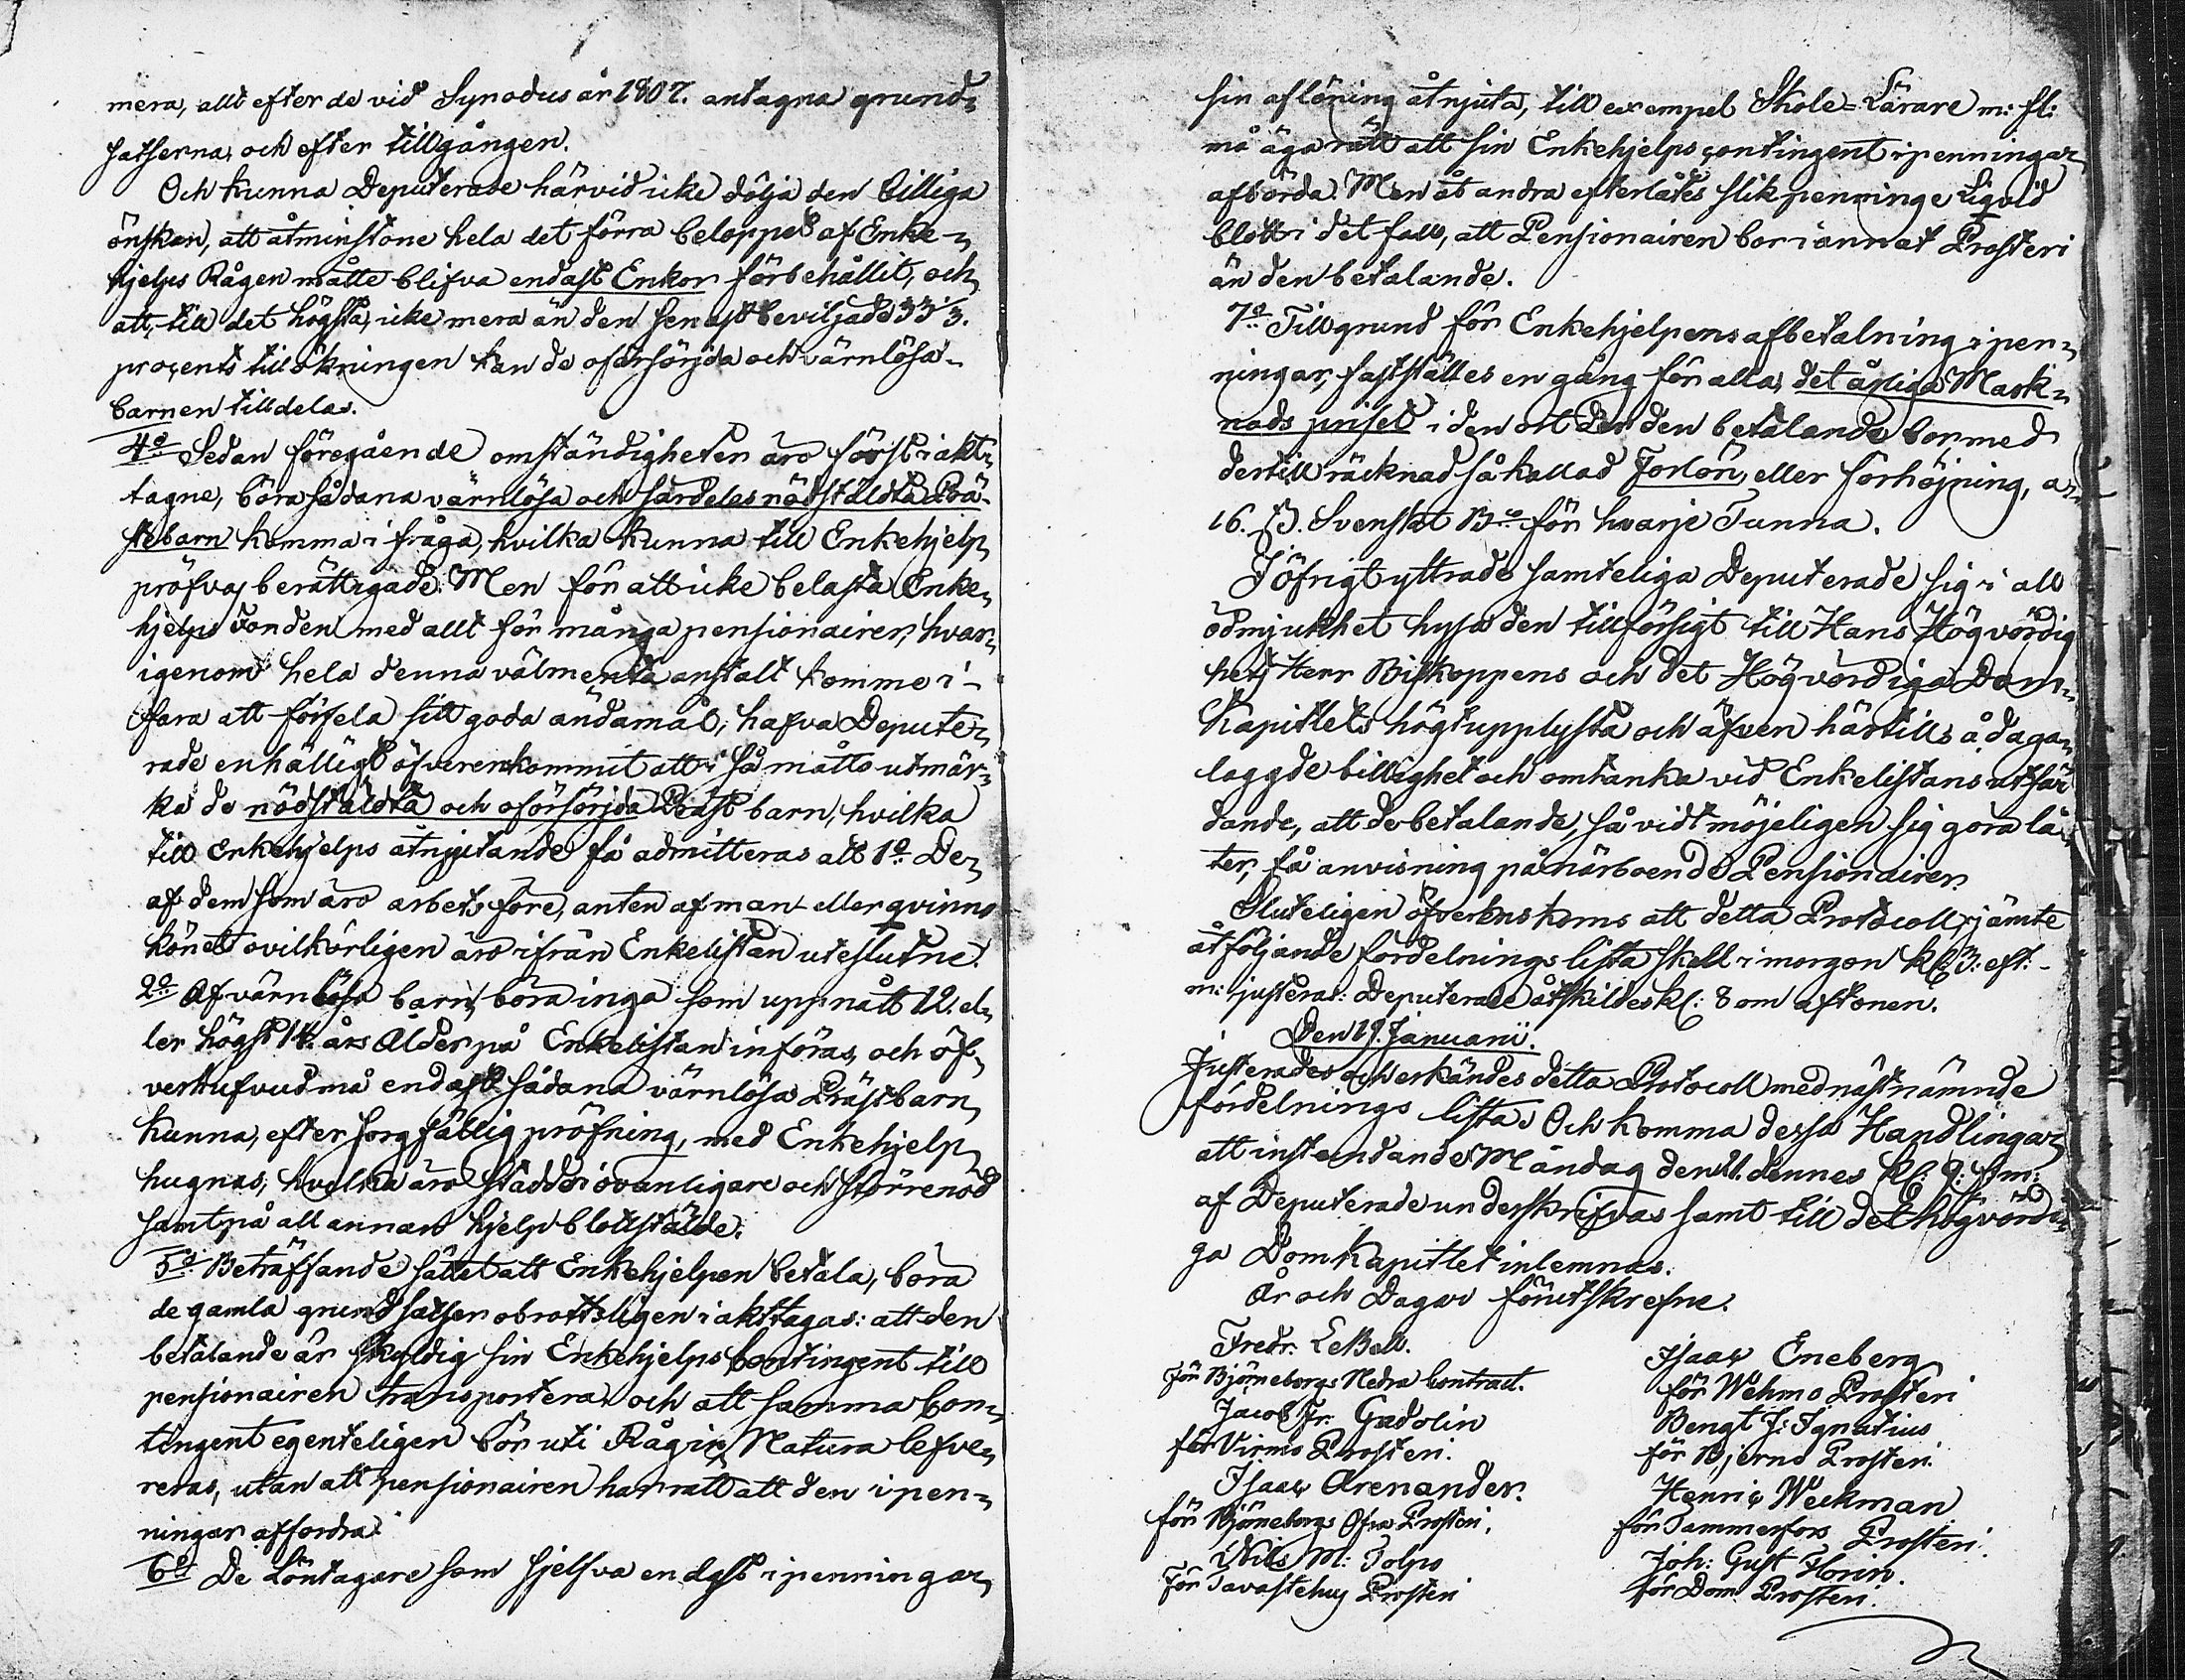 mera, allt efter de vid Synodus år 1807. antagna grund=
satserna, och efter tillgången.
Och kunna Deputerade härvid icke dölja den billiga
önskan, att åtminstone hela det förra beloppet af Enke=
hjelps Rågen måtte blifva endast Enkor förbehållit, och
att, till det högsta, icke mera än den senast beviljade 33⅓.
proçents tillökningen kan de oförsörjda och värnlösa
barnen tilldelas.
4:o Sedan föregående omständigheter äro först i akt=
tagne, böra sådana värnlösa och särdeles nödstäldta Prä=
stebarn komma i fråga, hvilka kunna till Enkehjelp
pröfvas berättigade. Men för att icke belasta Enke=
hjelps Fonden med allt för många pensionairer, hvar=
igenom hela denna välmenta anstalt komme i
fara att förfela sitt goda ändamål; hafva Depute=
rade enhälligt öfverenkommit att i så måtto utmär=
ka de nödstäldta och oförsörjda Präst barn, hvilka
till Enkehjelps åtnjutande få admitteras att 1:o De
af dem som äro arbetsföre, anten af man eller qvinno
könet ovilkorligen äro ifrån Enkelistan uteslutne.
2:o Af värnlösa barn, böra inga som uppnått 12. el=
ler högst 14. års Ålder på Enkelistan införas, och öf=
verhufvud må endast sådana värnlösa Prästbarn
kunna, efter sorgfällig pröfning, med Enkehjelp
hugnas; hvilka äro stadde i ovanligare och större nöd
samt på all annan hjelp blottstälde.
5:o Beträffande sättet att Enkehjelpen betala, böra
de gamla grundsatser obrottsligen i akttagas: att den
betalande är skyldig sin Enkehjelps Contingent till
pensionairen transportera och att samma Con=
tingent egenteligen bör uti Råg in Natura lefve=
reras, utan att pensionairen har rätt att den i pen=
ningar affordra.
6:o De Löntagare som sjelfva endast i penningar
sin aflöning åtnjuta, till exempel Skole=Lärare m: fl:
må äga rätt att sin Enkehjelps çontingent i penningar
afbörda. Men åt andra efterlåtes slik penninge Liqvid
blott i det fall, att Pensionairen bor i annat Prosteri
än den betalande.
7:o Till grund för Enkehjelpens afbetalning i pen=
ningar, fastställes en gång för alla, det årliga Mark=
nads priset i den ort der den betalande bor med
dertill räcknad så kallad Forlön, eller förhöjning, a
16. ß. Svenskt B:o för hvarje Tunna.
I öfrigt yttrade samteliga Deputerade sig i all
ödmjukhet hysa den tillförsigt till Hans Högvördig
hets Herr Biskoppens och det Högvördiga Dom=
Kapitlets högtupplysta och äfven härtills å daga=
laggde billighet och omtanka vid Enkelistans utfär
dande, att de betalande, så vidt möjeligen sig göra lå=
ter, få anvisning på närboende Pensionairer.
Sluteligen öfverens koms att detta Protocoll, jämte
åtföljande fördelnings lista skall i morgon kl: 3: eft:
m: justeras: Deputerade åtskildes kl: 8 om aftonen.
Den 19. Januarii.
Justerades och erkändes detta Protocoll med nästnämnde
fördelnings lista. Och komma dessa Handlingar
att instundande Måndag den 21. dennes kl: 9: f.m:
af Deputerade underskrifvas samt till det högvördi=
ga DomKapitlet inlemnas.
År och Dagar förutskrefne.
Fredr. LeBell.
för Björneborgs Nedra Contract.
Jacob Fr. Gadolin
för Virmo Prosteri.
Isaac Arenander.
för Björneborgs Öfra Prosteri.
Nils M: Tolpo
För Tavastehus Prosteri
Isaac Eneberg
för Wehmo Prosteri
Bengt J: Ignatius
för Bjerno Prosteri.
Henric Weckman
för Tammerfors Prosteri.
Joh: Gust Florin.
för Dom Prosteri.